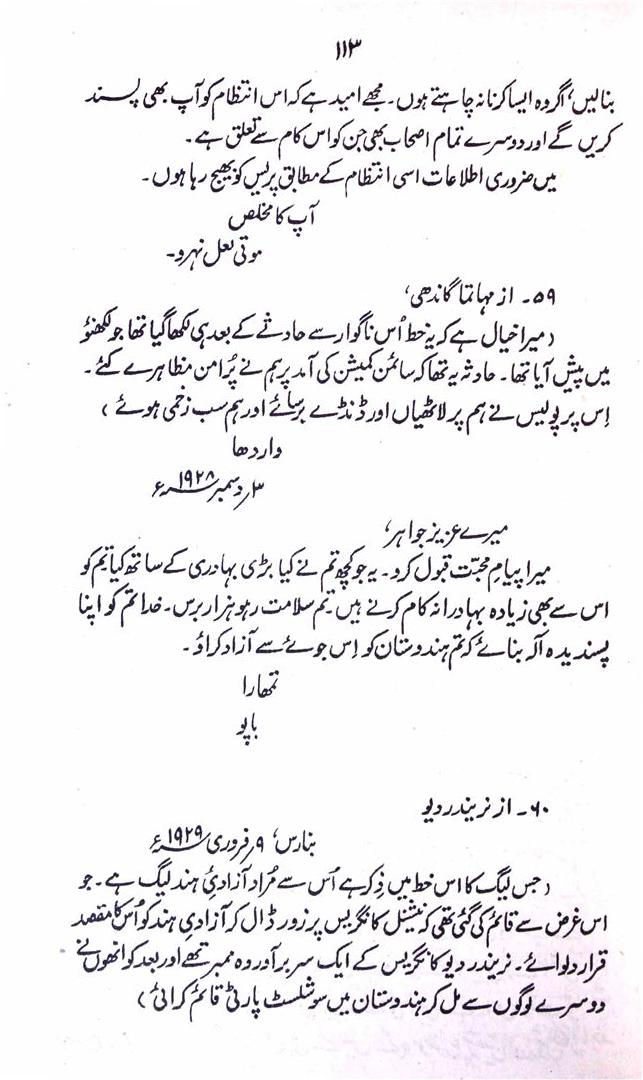 ۱۱۳
بنالیں، اگر وہ ایسا کرنا نہ چاہتے ہوں۔ مجھے امید ہے کہ اس انتظام کو آپ بھی پسند
کریں گے اور دوسرے تمام اصحاب بھی جن کو اس کام سے تعلق ہے۔
میں ضروری اطلاعات اسی انتظام کے مطابق پریس کو بھیج رہا ہوں۔
آپ کا مخلص
موتی لعل نہرو۔
۵۹۔ از مہاتما گاندھی،
(میرا خیال ہے کہ یہ خط اُس ناگوار سے حادثے کے بعد ہی لکھا گیا تھا جو لکھنؤ
میں پیش آیا تھا۔ حادثہ یہ تھا کہ سائمن کمیشن کی آمد پر ہم نے پُرامن مظاہرے کئے۔
اِس پر پولیس نے ہم پر لاٹھیاں اور ڈنڈے برسائے اور ہم سب زخمی ہوئے)
واردھا
۳ر دسمبر ۱۹۲۸ء
میرے عزیز جواہر،
میرا پیامِ محبّت قبول کرو۔ یہ جو کچھ تم نے کیا بڑی بہادری کے ساتھ کیا تم کو
اس سے بھی زیادہ بہادرانہ کام کرنے ہیں۔ تم سلامت رہو ہزار برس۔ خدا تم کو اپنا
پسندیدہ آلہ بنائے کہ تم ہندوستان کو اِس جوئے سے آزاد کراؤ۔
تمھارا
باپو
۶۰۔ از نریندر دیو
بنارس، ۹ر فروری ۱۹۲۹ء
(جس لیگ کا اس خط میں ذِکر ہے اُس سے مُراد آزادیٔ ہند لیگ ہے۔ جو
اس غرض سے قائم کی گئی تھی کہ نیشنل کانگریس پر زور ڈال کر آزادیِ ہند کو اُس کا مقصد
قرار دلوائے۔ نریندر دیو کانگریس کے ایک سربرآوردہ ممبر تھے اور بعد کو انھوں نے
دوسرے لوگوں سے مل کر ہندوستان میں سوشلسٹ پارٹی قائم کرائی)